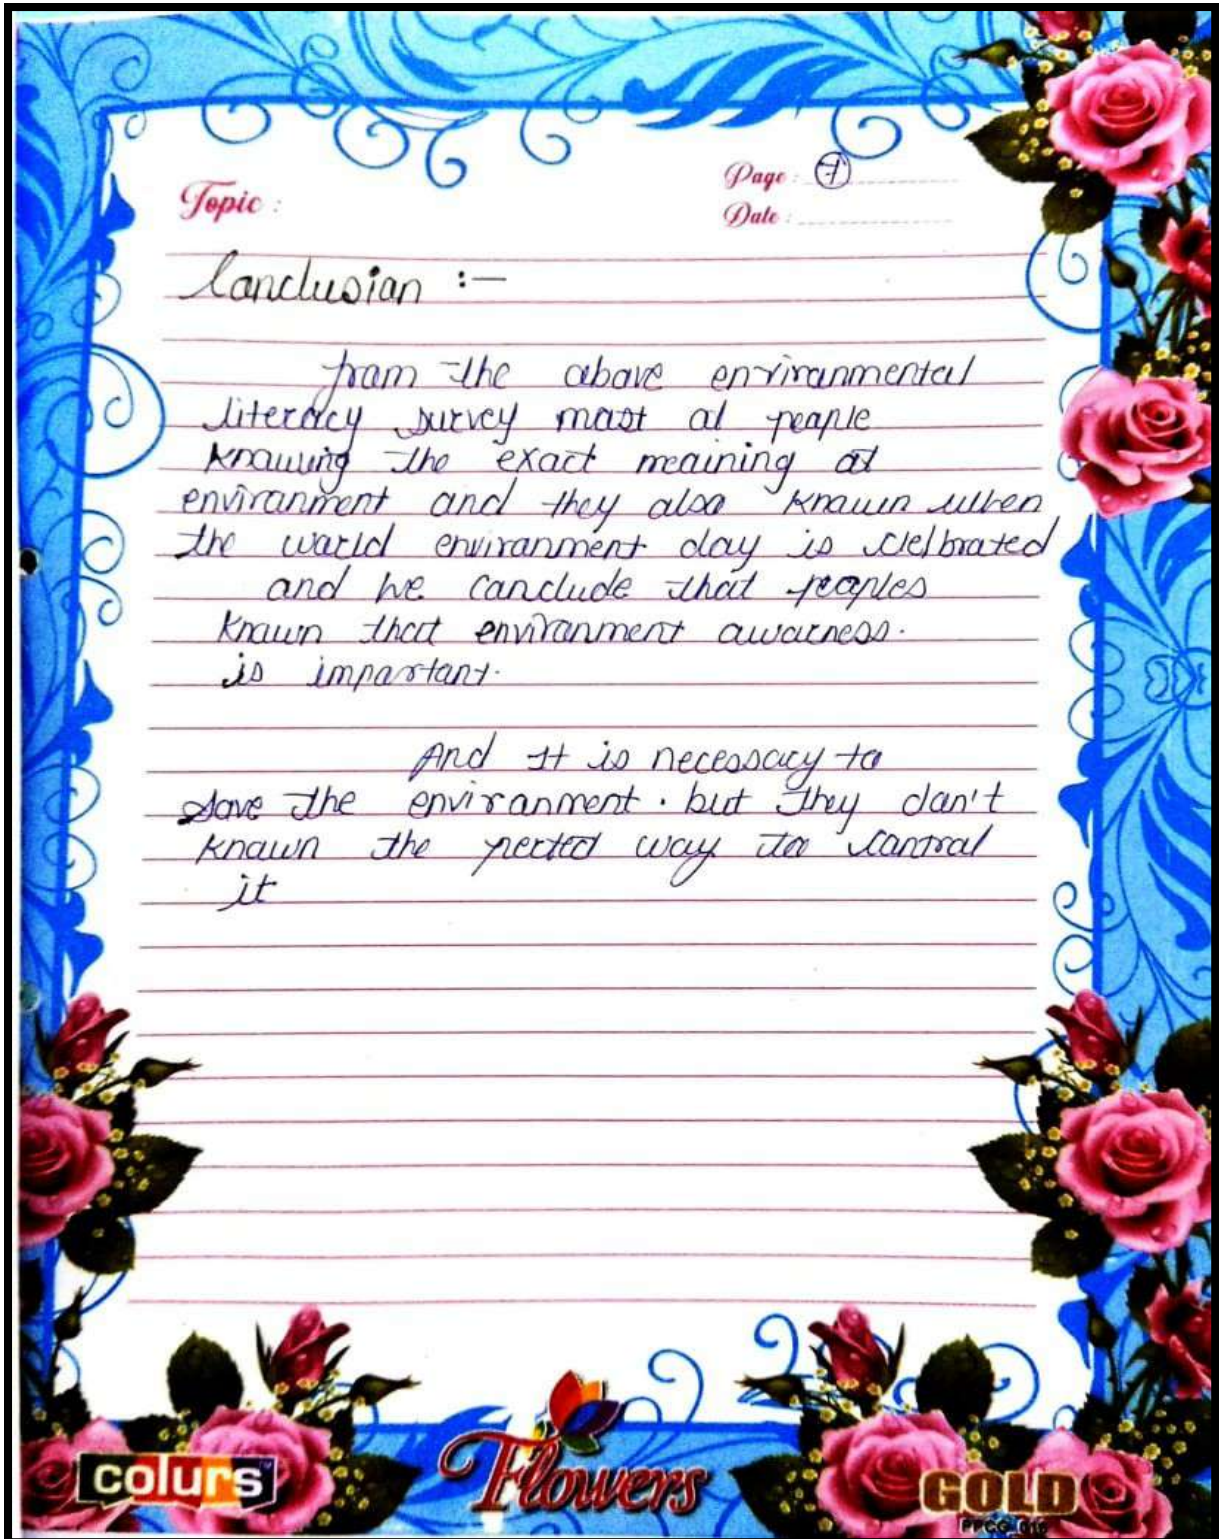 Topic :
Page : 7
Date :
Conclusion :-
from the above environmental
literacy survey most of people
knowing the exact meaining of
environment and they also known when
the world environment day is clelbrated
and we conclude that peoples
known that environment awarness.
is important.
And It is necessary to
save the environment. but they don't
known the perfect way to control
it
colurs
Flowers
GOLD